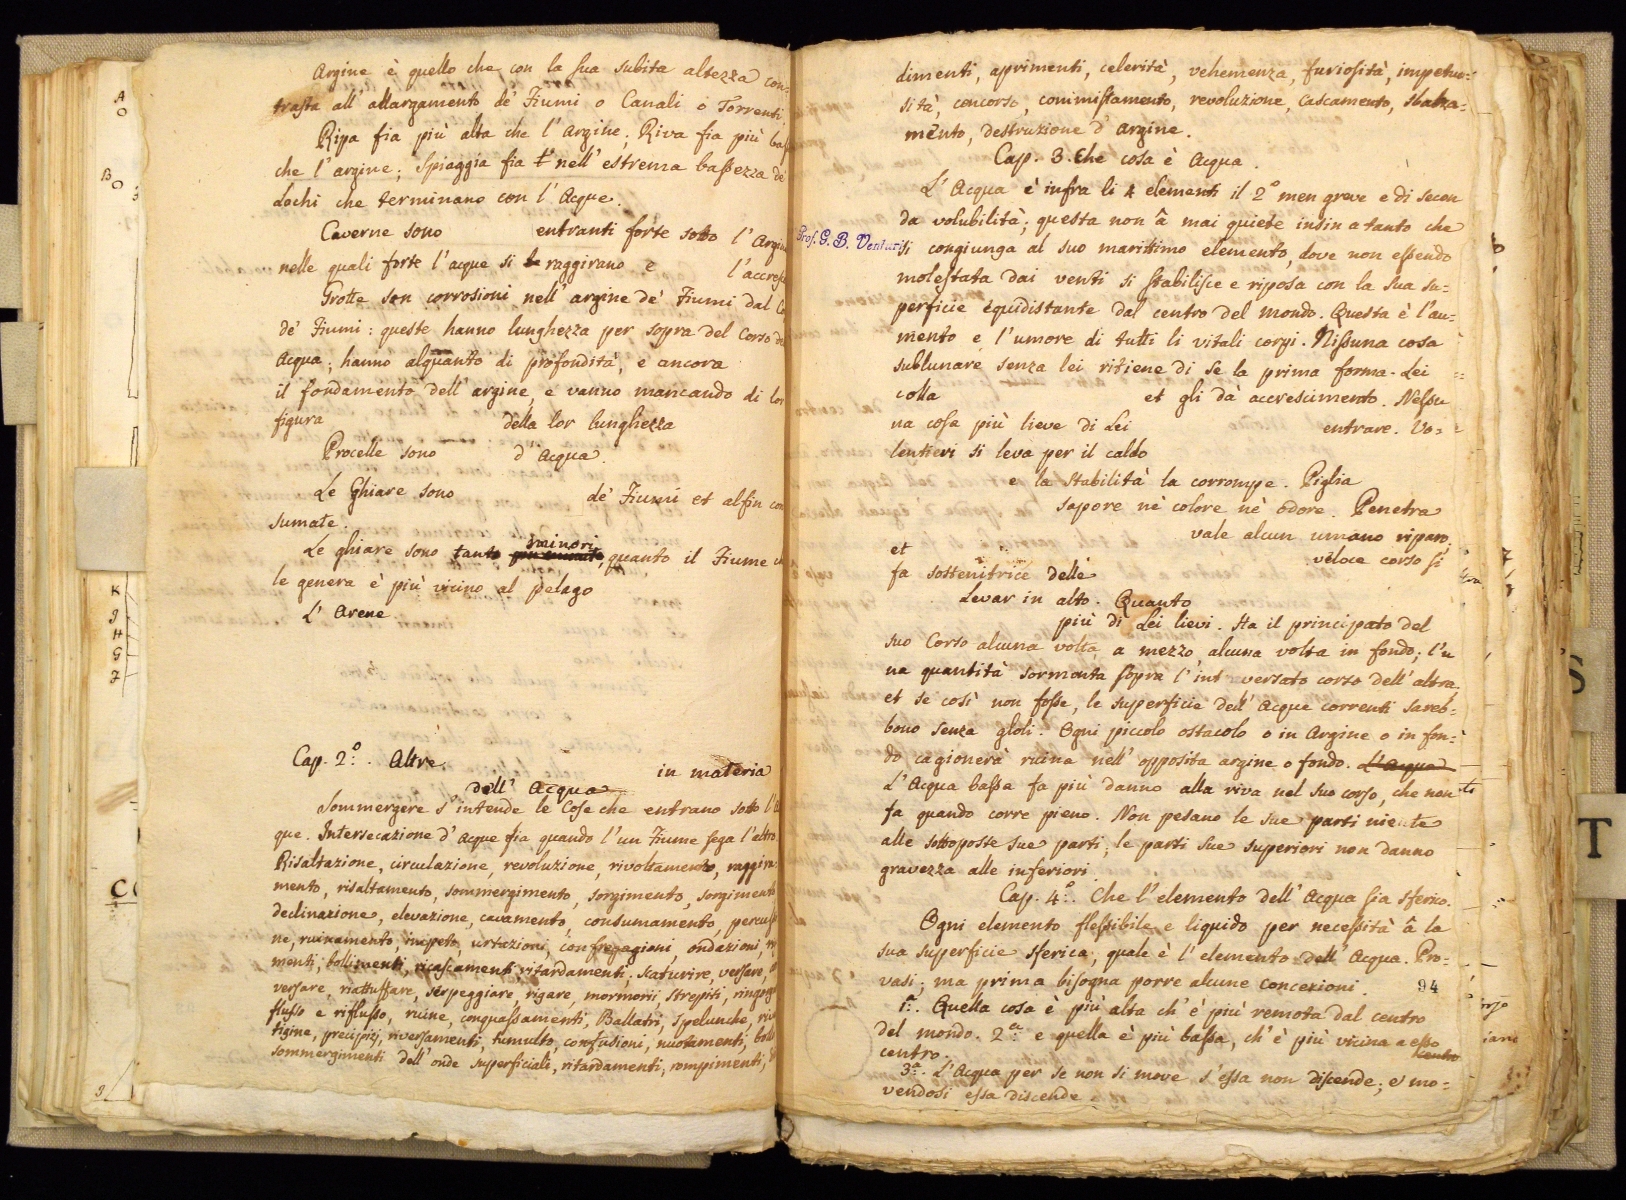 Argine è quello che con la sua subita altezza con=
trasta all' allargamento de' Fiumi o Canali o Torrenti.
Ripa fia più alta che l' Argine; Riva fia più bas
che l' argine; Spiaggia fia nell' estrema bassezza de'
Lochi che terminano con l' Acque.
Caverne sono entranti forte sotto l' Argin
nelle quali forte l' acque si raggirano e l' accresc
Grotte son corrosioni nell' argine de' Fiumi dal
de' Fiumi: queste hanno lunghezza per sopra del Corso
Acqua; hanno alquanto di profondità, e ancora
il fondamento dell' argine, e vanno mancando di lor
figura della lor lunghezza
Procelle sono d' Acqua.
Le Ghiare sono de' Fiumi et alfin con
sumate.
Le ghiare sono tanto minori, quanto il Fiume
le genera è più vicino al pelago
L' Arene
Cap. 2º. Altre in materia
dell' Acqua
Sommergere s' intende le Cose che entrano sotto l' A
que. Intersecazione d' Acque fia quando l' un Fiume sega l' altro
Risaltazione, circulazione, revoluzione, rivoltamento, raggira
mento, risaltamento, sommergimento, sorgimento, sorgimento
declinazione, elevazione, cavamento, consumamento, percus
ne, ruinamento, impeto, urtazioni, confregagioni, ondazioni,
menti, bollimenti, ricascamenti, ritardamenti, scaturire, versare,
versare, riattuffare, serpeggiare, rigare, mormorii strepiti, ringorg
flusso e riflusso, ruine, conquassamenti, Ballatri, Spelunche,
tigine, precipizj, riversamenti, tumulto, confusioni, nuotamenti, boll
sommergimenti dell' onde superficiali, ritardamenti, rompimenti,
dimenti, aprimenti, celerità, vehemenza, furiosità, impetuo=
sità, concorso, commistamento, revoluzione, cascamento, sbalza=
mento, destruzione d' argine.
Cap. 3. Che cosa è Acqua.
L' Acqua è infra li 4 elementi il 2º men greve e di secon
da volubilità; questa non â mai quiete insin a tanto che
Prof. G. B. Venturi
si congiunga al suo marittimo elemento, dove non essendo
molestata dai venti si stabilisce e riposa con la sua su=
perficie equidistante dal centro del mondo. Questa è l' au=
mento e l' umore di tutti li vitali corpi. Nissuna cosa
sublunare senza lei ritiene di se la prima forma. Lei
colla et gli dà accrescimento. Nessu
na cosa più lieve di Lei entrare. Vo=
lentieri si leva per il caldo
e la stabilità la corrompe. Piglia
sapore nè colore nè odore. Penetra
vale alcun umano riparo,
et veloce corso si
fa sostenitrice delle
Levar in alto. Quanto
più di Lei lievi. Sta il principato del
suo Corso alcuna volta a mezzo alcuna volta in fondo; l' u
na quantità sormonta sopra l' int versato corso dell' altra,
et se così non fosse, le superficie dell' Acque correnti sareb=
bono senza globi. Ogni piccolo ostacolo o in Argine o in fon=
do cagionerà ruina nell' opposita argine o fondo. L' Acqua
L' Acqua bassa fa più danno alla riva nel suo corso, che non
fa quando corre pieno. Non pesano le sue parti niente
alle sottoposte sue parti; le parti sue superiori non danno
gravezza alle inferiori
Cap. 4º. Che l' elemento dell' Acqua sia sferico.
Ogni elemento flessibile e liquido per necessità â la
sua superficie sferica, quale è l' elemento dell' Acqua. Pro=
vasi; ma prima bisogna porre alcune concezioni.
94
1ª. Quella cosa è più alta ch' è più remota dal centro
del mondo. 2ª. e quella è più bassa, ch' è più vicina a esso
centro. centro
3ª. L' Acqua per se non si move s' essa non discende; e mo=
vendosi essa discende